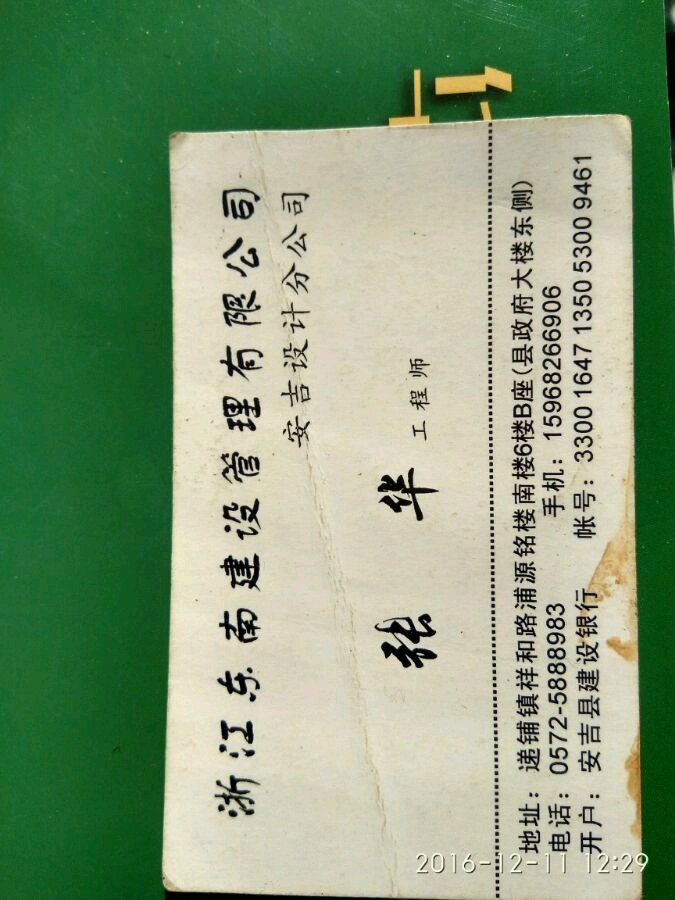 浙江东南建设管理有限公司
安吉设计分公司
张 华 工程师
地址：递铺镇祥和路浦源铭楼南楼6楼B座(县政府大楼东侧)
电话：0572-5888983 手机：15968266906
开户：安吉县建设银行 帐号：3300 1647 1350 5300 9461
2016-12-11 12:29